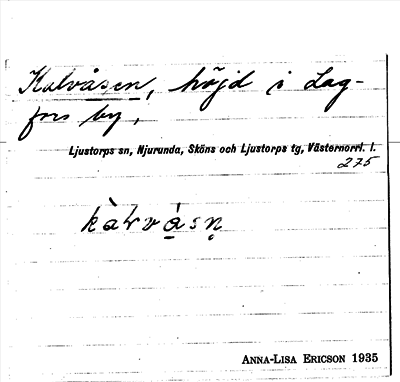 Kalvåsen, höjd i Lag-
fors by,
Ljustorps sn, Njurunda, Sköns och Ljustorps tg, Västernorrl. l.
275
kàlvá̱sn̥
ANNA-LISA ERICSON 1935